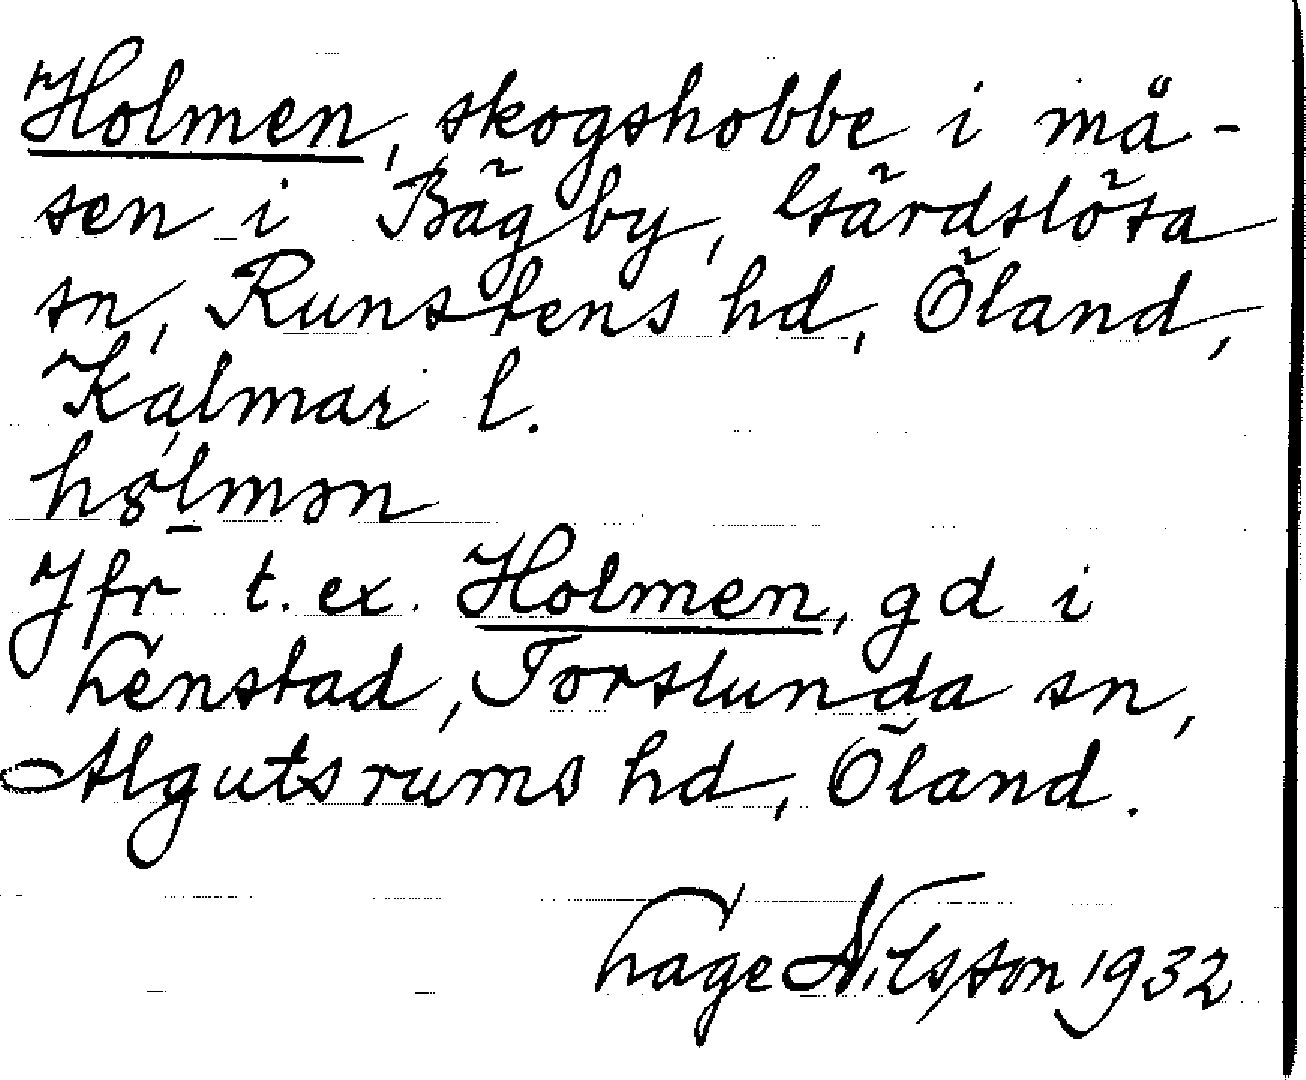 Holmen, skogshobbe i må-
sen i Bägby, Gärdslösa
sn, Runstens hd, Öland,
Kalmar l.
Jfr t. ex. Holmen, gd i
Lenstad, Torslunda sn,
Algutsrums hd, Öland.
Lage Nilsson 1932